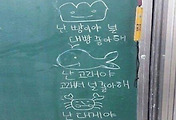 난 빵이야 널
대빵 좋아해
난 고래야
고래서 널 좋아해
난 다게이야